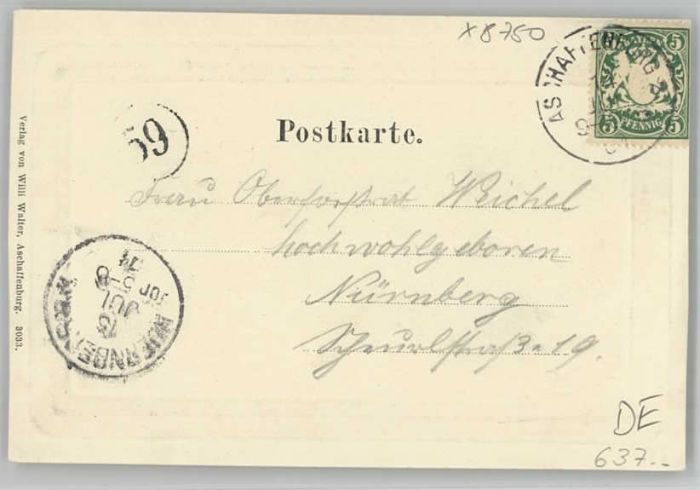 x8750
ASCHAFFENBURG 2
5 5
PFENNIG
59
Postkarte.
Frau Oberforstrat Weichel
hochwohlgeboren
Nürnberg
Scheurlstraße 19.
NUERNBERG
13
JUL
5-6
Verlag von Willi Walter, Aschaffenburg. 3033.
DE
637.--